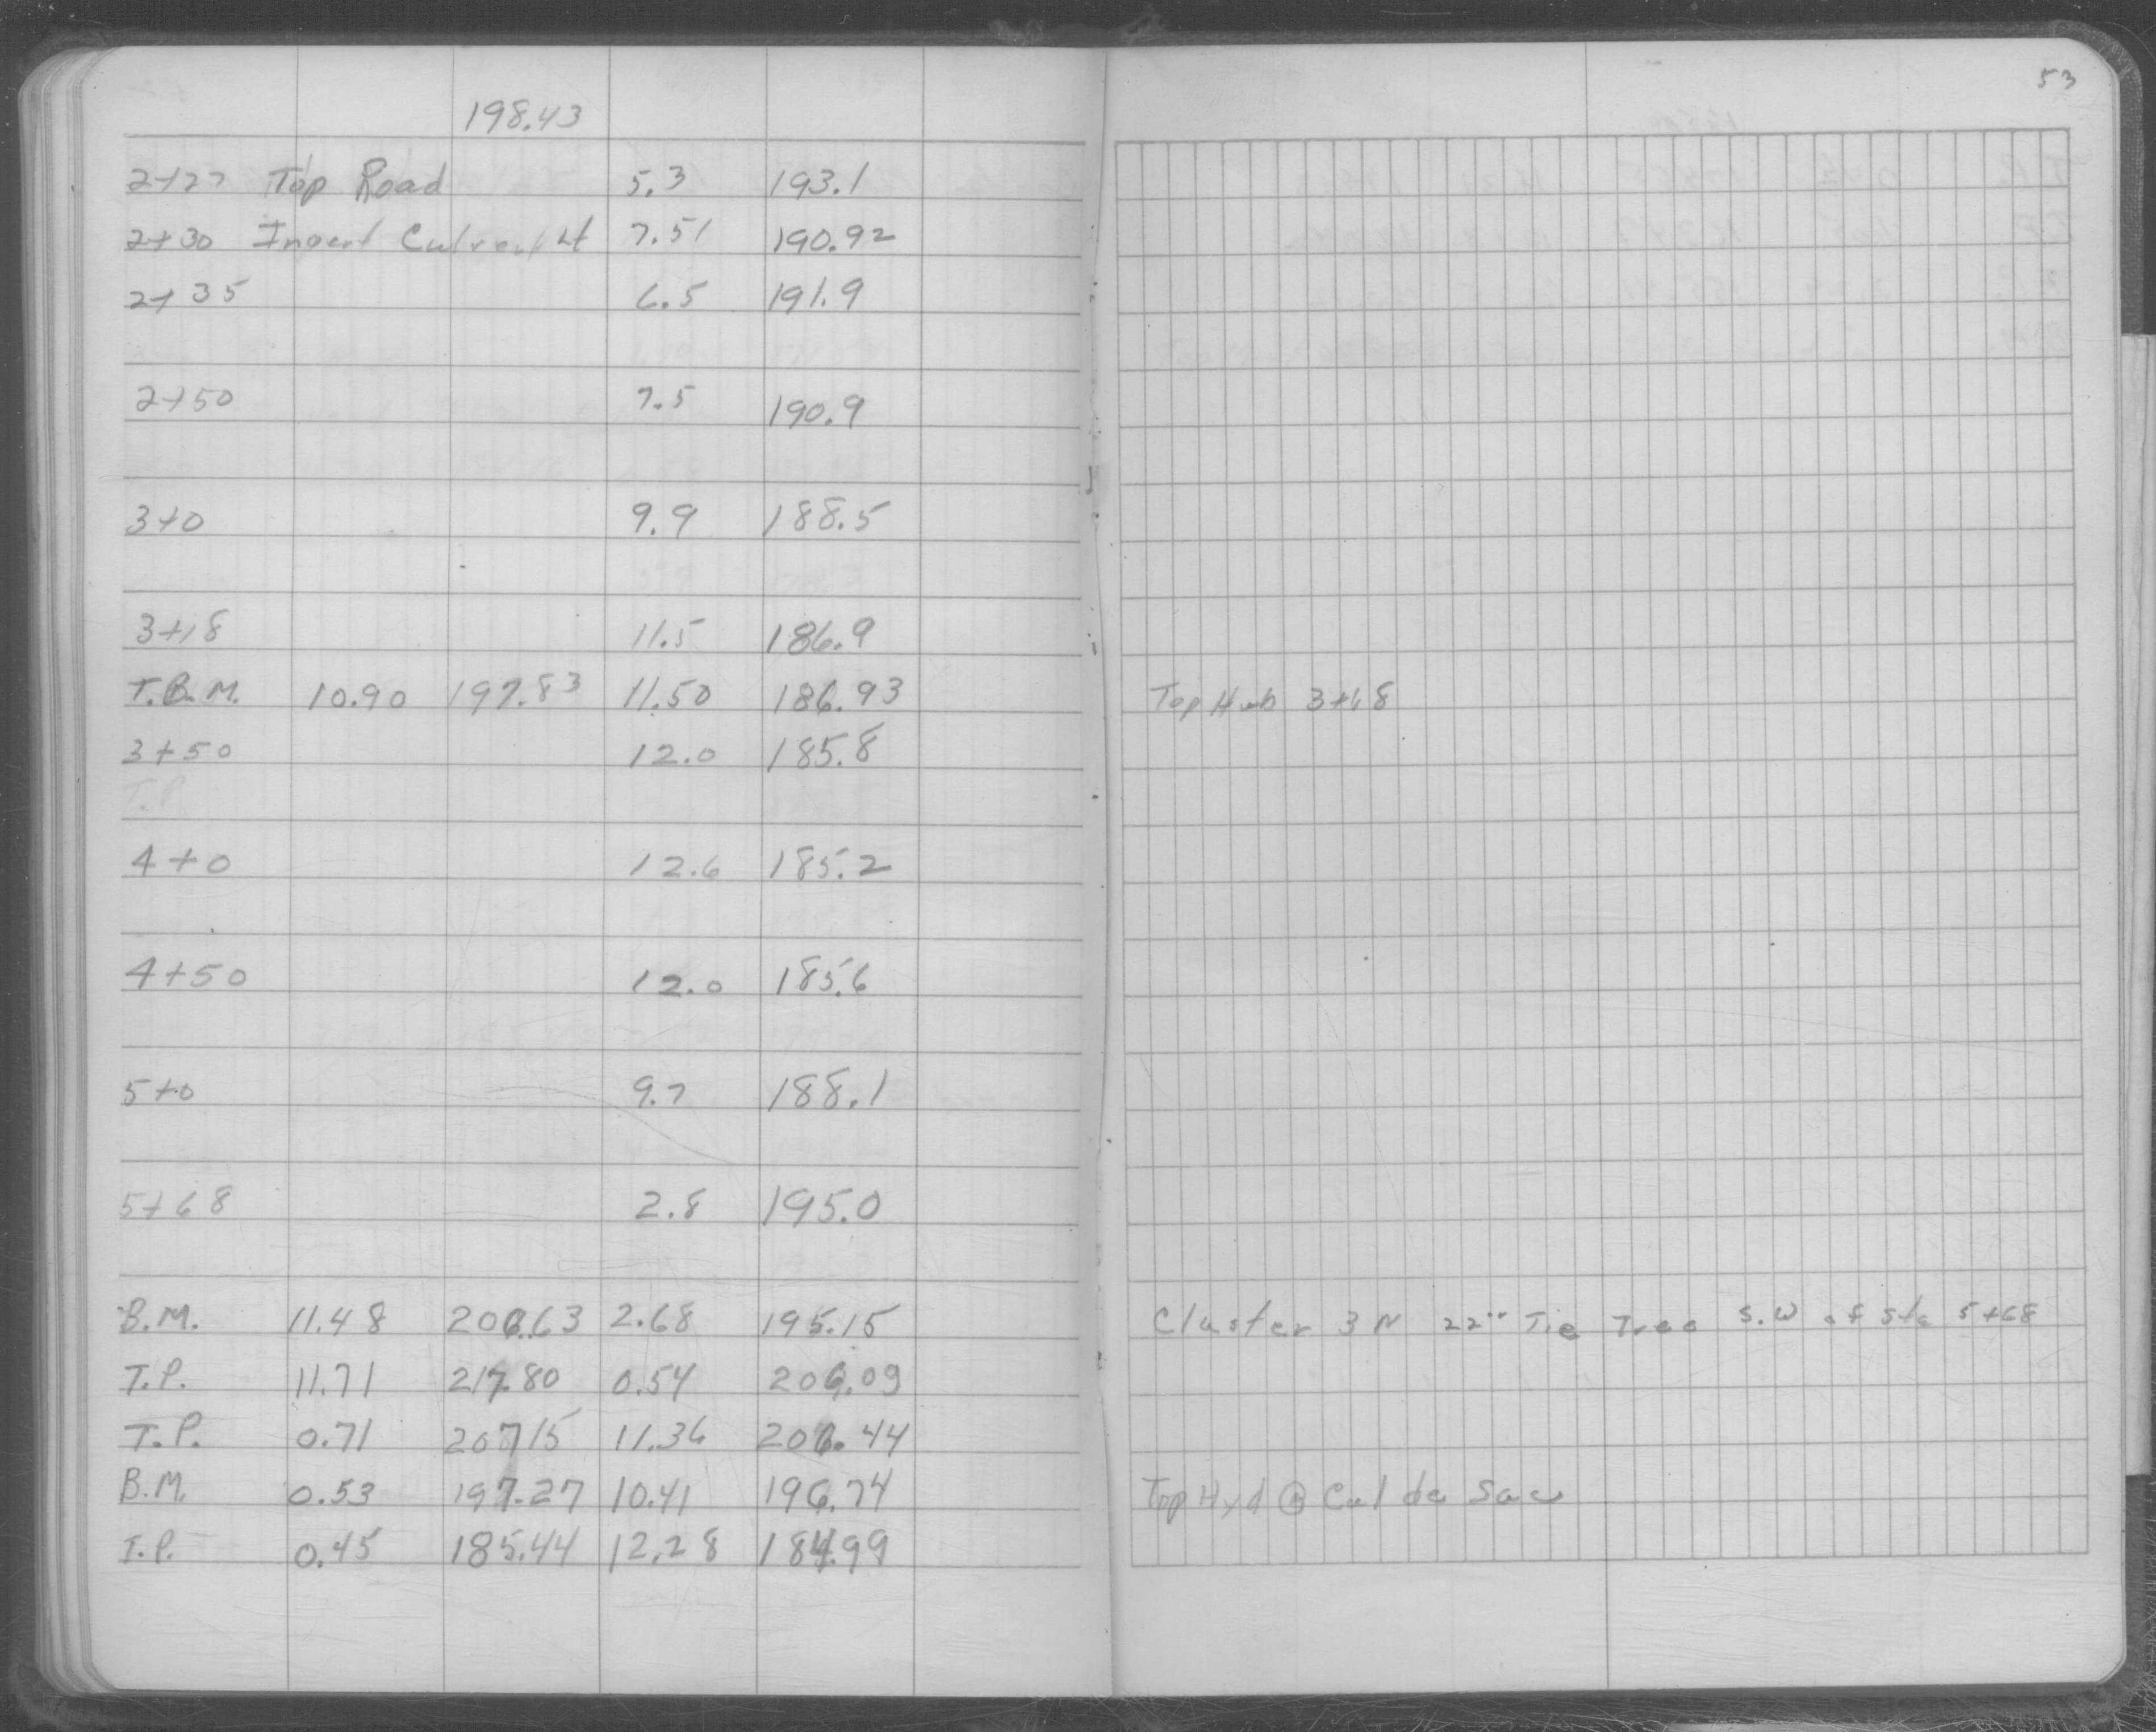 53
198.43
2+27 Top Road 5.3 193.1
2+30 Invert Culvert Lt 7.51 190.92
2+35 6.5 191.9
2+50 7.5 190.9
3+0 9.9 188.5
3+18 11.5 186.9
T.B.M. 10.90 197.83 11.50 186.93 Top Hub 3+18
3+50 12.0 185.8
T.P.
4+0 12.6 185.2
4+50 12.0 185.6
5+0 9.7 188.1
5+68 2.8 195.0
B.M. 11.48 206.63 2.68 195.15 Cluster 3 N 22" Tie Tree S.W of Sta 5+68
T.P. 11.71 217.80 0.54 206.09
T.P. 0.71 207.15 11.36 206.44
B.M. 0.53 197.27 10.41 196.74 Top Hyd @ Cul de Sac
T.P. 0.45 185.44 12.28 184.99